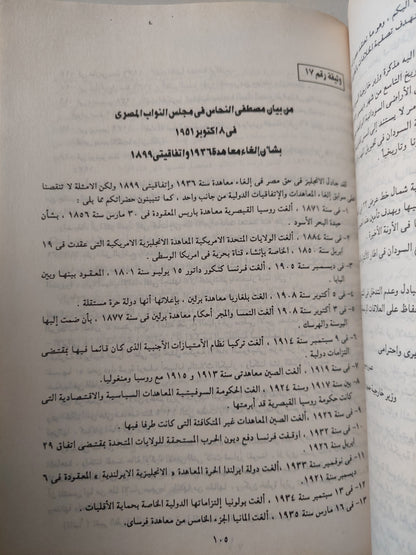 وثيقة رقم ١٧
من بيان مصطفى النحاس فى مجلس النواب المصرى
فى ٨ اكتوبر ١٩٥١
بشان إلغاء معاهدة ١٩٣٦ واتفاقيتى ١٨٩٩
لقد جادل الانجليز فى حق مصر فى إلغاء معاهدة سنة ١٩٣٦ وإتفاقيتى ١٨٩٩ ولكن الامثلة لا تنقصنا
على سوابق إلغاء المعاهدات والإتفاقيات الدولية من جانب واحد ، كما تتبينون حضراتكم مما يلى :
١- فى سنة ١٨٧١ ، ألغت روسيا القيصرية معاهدة باريس المعقودة فى ٣٠ مارس سنة ١٨٥٦ ، بشأن
حيدة البحر الأسود .
٢- فى سنة ١٨٨٤ ، ألغت الولايات المتحدة الامريكية المعاهدة الأنجليزية الامريكية التى عقدت فى ١٩
ابريل سنة ١٨٥٠ ، الخاصة بإنشاء قناة بحرية فى امريكا الوسطى .
٣- فى ديسمبر سنة ١٩٠٥ ، ألغت فرنسا كنكور داتور ١٥ يوليو سنة ١٨٠١ ، المعقود بينها وبين
البابا .
٤- فى ٥ أكتوبر سنة ١٩٠٨ ، ألغت بلغاريا معاهدة برلين ، بإعلانها أنها دولة حرة مستقلة .
٥- فى ٣ أكتوبر سنة ١٩٠٨ ألغت النمسا والمجر أحكام معاهدة برلين فى ١٨٧٧ ، بأن ضمت إليها
البوسنة والهرسك .
٦- فى ٩ سبتمبر سنة ١٩١٤ ، ألغت تركيا نظام الأمتيازات الأجنبية الذى كان قائما فيها بمقتضى
التزامات دولية .
٧- فى سنة ١٩١٩ ، ألغت الصين معاهدتى ١٩١٣ و ١٩١٥ مع روسيا ومنغوليا .
٨- بين سنة ١٩١٧ وسنة ١٩٢٤ ، ألغت الحكومة السوفيتية المعاهدات السياسية والاقتصادية التى
كانت حكومة روسيا القيصرية قد أبرمتها .
٩- فى سنة ١٩٢٦ ، ألغت الصين المعاهدات غير المتكافئة التى كانت طرفا فيها .
١٠- فى أكتوبر سنة ١٩٣٢ ، اوقفت فرنسا دفع ديون الحرب المستحقة للولايات المتحدة بمقتضى إتفاق ٢٩
ابريل سنة ١٩٢٦ .
١١- فى نوفمبر سنة ١٩٣٣ ، ألغت دولة ايرلندا الحرة المعاهدة « الانجليزية الايرلندية » المعقودة فى ٦
ديسمبر سنة ١٩٢١ .
١٢- فى ١٣ سبتمبر سنة ١٩٣٤ ، ألغت بولونيا إلتزاماتها الدولية الخاصة بحماية الأقليات .
١٣- فى ١٦ مارس سنة ١٩٣٥ ، ألغت المانيا الجزء الخامس من معاهدة فرساى .
١٠٥